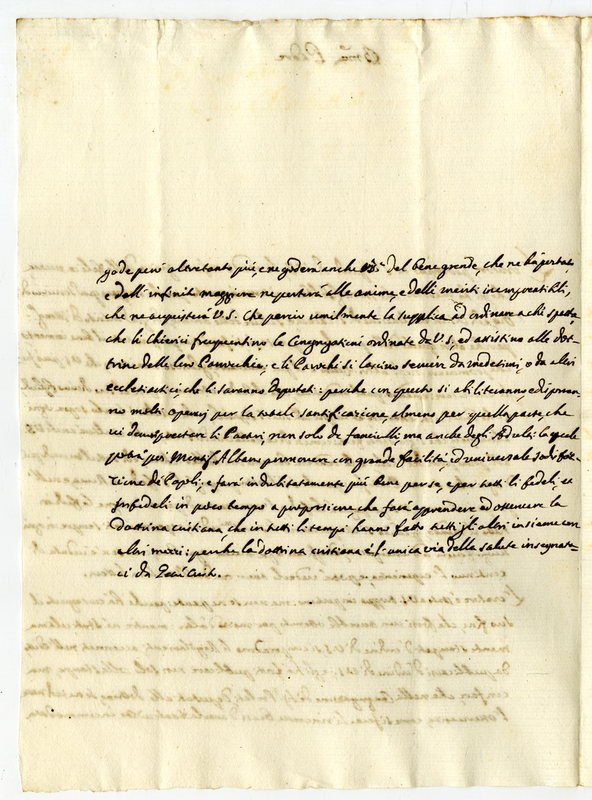 gode però altretanto più, e ne goderà anche V.S. del bene grande, che ne ha portato,
e dell' infinit maggiore ne porterà alle anime, e delli meriti incomprensibili,
che ne acquisterà V.S. Che perciò umilmente la supplica ad ordinare a chi spetta
che li Chierici frequentino le Congregationi ordinate da V.S, ed assistino alle dot-
trine delle loro Parochie; e li Parochi si lascino servire da medesimi, o da altri
ecclesiastici, che li saranno Deputati: perche con questo si abiliteranno, e
no molti operarj per la totale santificazione, almeno per quella parte, che
vi devono prestare li Pastori, non solo de fanciulli, ma anche degli Adulti: la quale
potrà poi Monsig. Albani promovere con grande facilità, ed universale sodisfaz-
zione de Popoli; e farà indubitatamente più bene per se, e per tutti li fedeli, et
Infedeli in poco tempo a proporzione che farà apprendere ed osservare la
Dottrina cristiana, che in tutti li tempi hanno fatto tutti gli altri insieme con
altri mezzi: perche la dottrina cristiana è l'unica via della salute insegnata-
ci da Gesù Cristo.